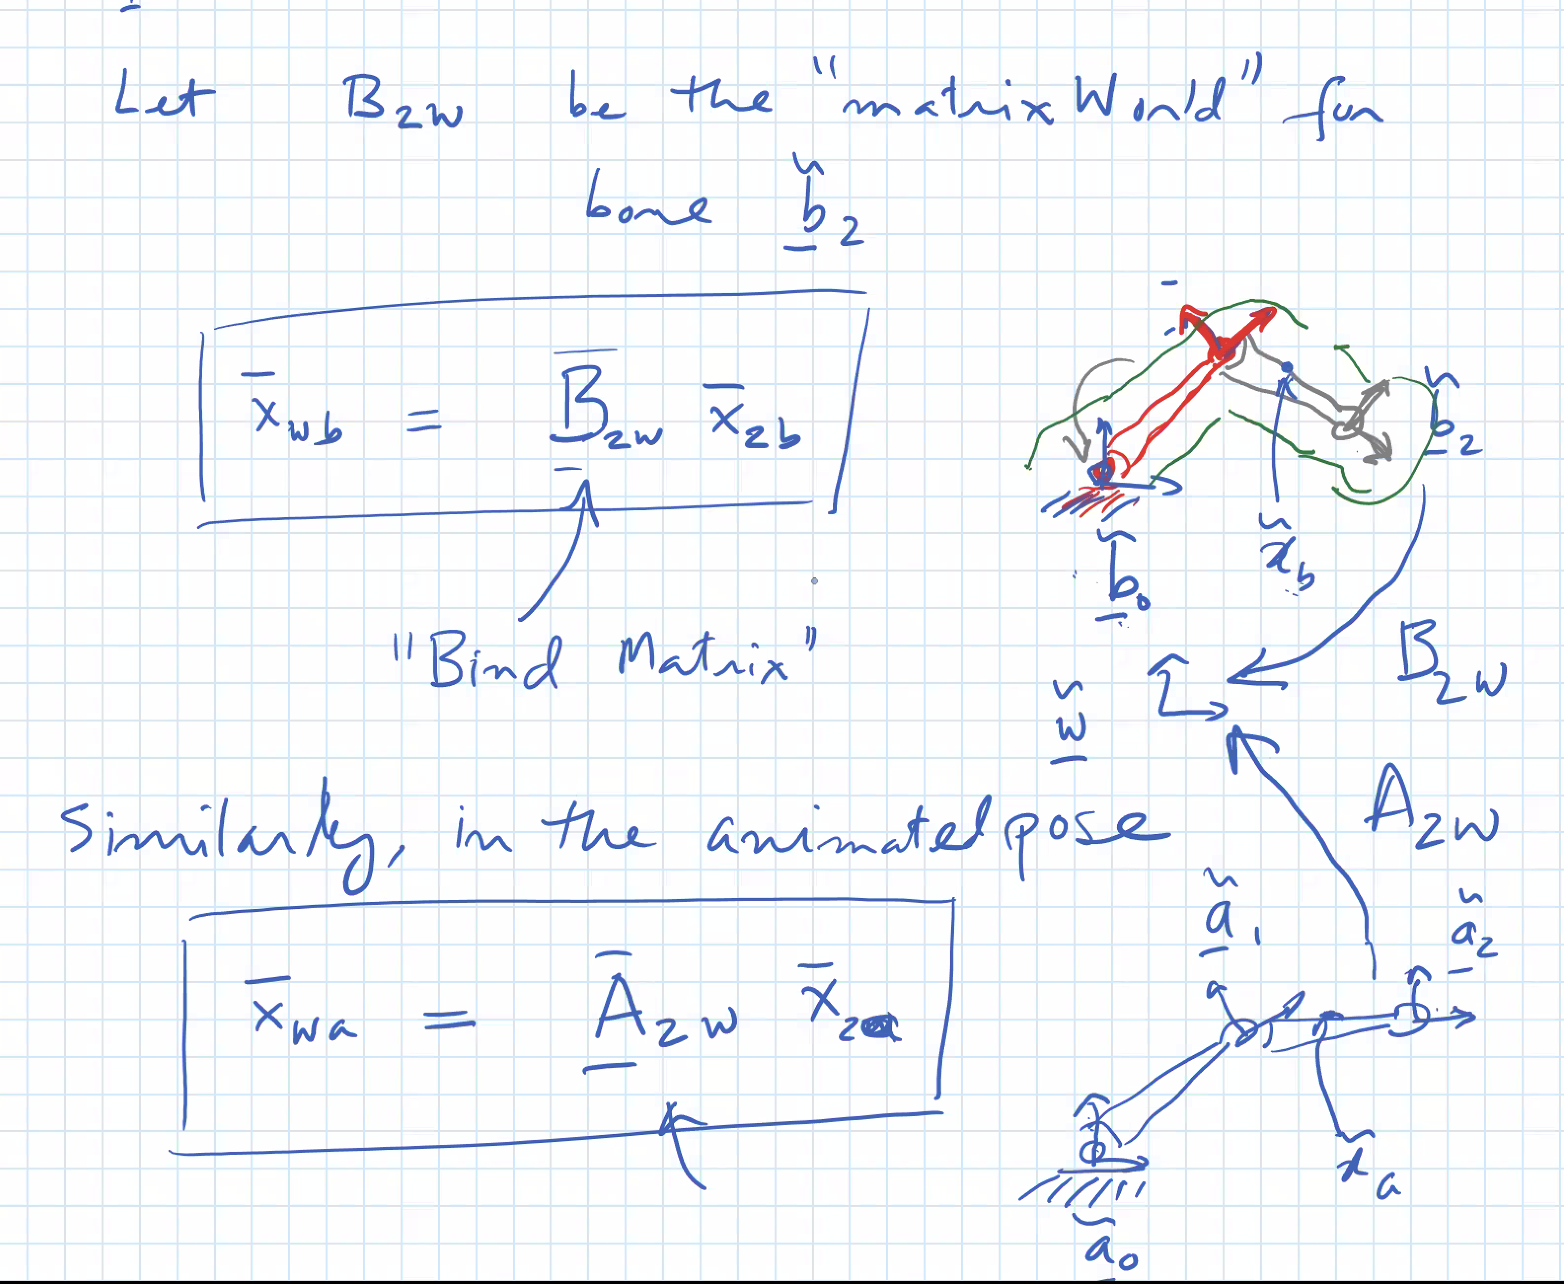 Let B₂w be the "matrixWorld" for
bone b̃₂
x̄wb = B̄₂w x̄₂b
"Bind Matrix"
b̃₂
b̃₀
x̃b
B₂w
w̃
Similarly, in the animated pose
A₂w
x̄wa = Ā₂w x̄₂a
ã₁
ã₂
x̃a
ã₀